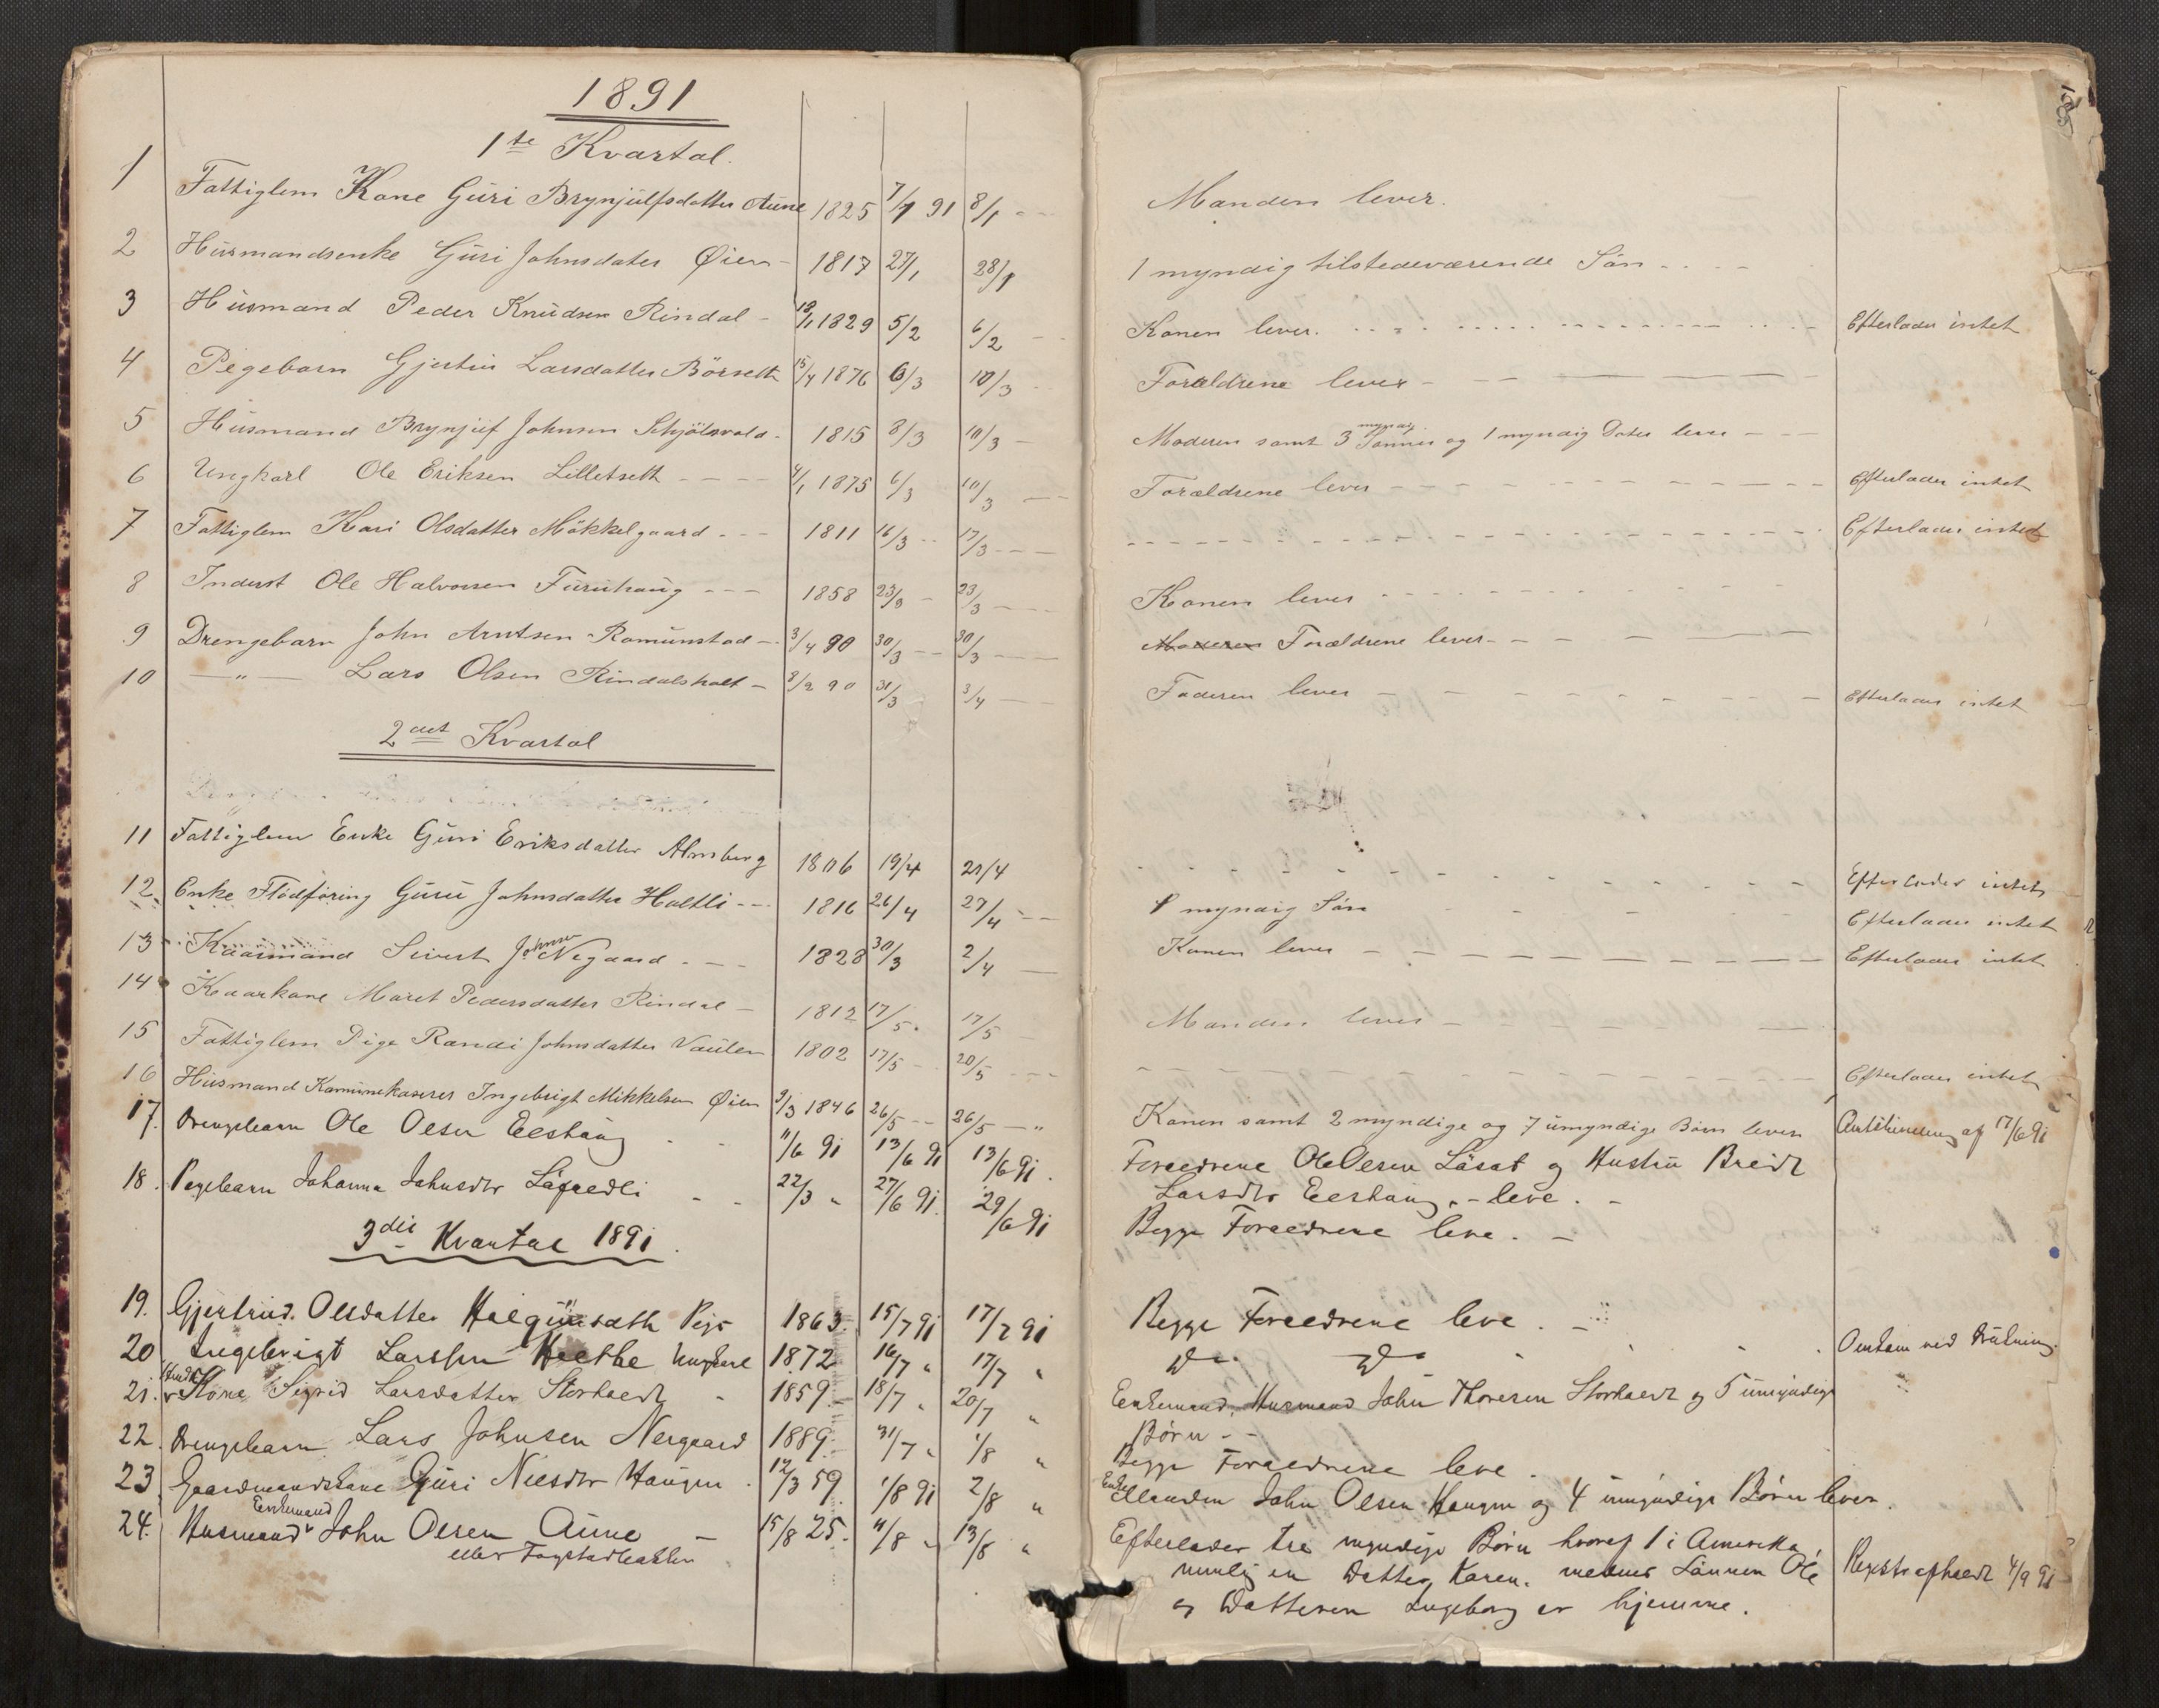 1891
1ste Kvartal.
1 Fattiglem Kone Guri Brynjulfsdatter Aune 1825 7/1 91 8/1
2 Husmandsenke Guri Johnsdater Øien 1817 27/1 28/1
3 Husmand Peder Knudsen Rindal 1829 5/2 6/2
4 Pigebarn Gjertin Larsdatter Börseth 15/4 1876 6/3 10/3
5 Husmand Brynjulf Johnsen Schjölsvold 1815 8/3 10/3
6 Ungkarl Ole Eriksen Lilletseth 4/1 1875 6/3 10/3
7 Fattiglem Kari Olsdatter Mökkelgaard 1811 16/3 17/3
8 Inderst Ole Halvorsen Furuhaug 1858 23/3 23/3
9 Drengebarn John Arntsen Romunstad 3/4 90 30/3 30/3
10 —"— Lars Olsen Rindalsholt 8/2 90 31/3 3/4
2det Kvartal
11 Fattiglem Enke Guri Eriksdatter Almberg 1806 19/4 21/4
12 Enke Flödföring Guru Johnsdatter Holtli 1816 26/4 27/4
13 Kaarmand Sivert Johnsen Negaard 1828 30/3 2/4
14 Kaarkone Marit Pedersdatter Rindal 1812 17/5 17/5
15 Fattiglem Pige Randi Johnsdatter Vaulen 1802 17/5 20/5
16 Husmand Komunekaserer Ingebrigt Mikkelsen Øien 9/3 1846 26/5 26/5 "
17. Drengebarn Ole Olsen Elshaug 11/6 91 13/6 91 13/6 91.
18. Pigebarn Johanna Johnsdtr Lägredli 22/3 " 27/6 91. 29/6 91
3die Kvartal 1891.
19. Gjertrud Olsdatter Helgumsæth Pige 1863. 15/7 91 17/7 91
20 Ingebrigt Larssen Heethe Ungkarl 1872 16/7 " 17/7 "
21. Kone Sigrid Larsdatter Storholt 1859 18/7 " 20/7 "
22. Drengebarn Lars Johnsen Nergaard 1889 31/7 " 1/8 "
23 Gaardmandskone Guri Nilsdtr Haugen 12/3 59 1/8 91 2/8 "
Enkemand
24. Husmand John Olsen Aune 15/8 25. 11/8 " 13/8 "
eller Fagstadbakken
Manden lever.
1 myndig tilstedeværende Sön
Konen lever. Efterlader intet
Forældrene lever
Moderen samt 3 myndig Sönner og 1 myndig Dater lever
Forældrene lever Efterlader intet
Efterlader intet
Konen lever
Moderen Forældrene lever
Faderen lever Efterlader intet
Efterlader intet
1 myndig Sön Efterlader intet
Konen lever Efterlader intet
Manden lever
Efterlader intet
Konen samt 2 myndige og 7 umyndige Börn lever af 17/6 91
Foreldrene Ole Olsen Läsat og Hustru Bridt
Larsdtr Elshaug. - leve. -
Begge Foreldrene leve. -
Begge Foreldrene leve. -
Do Do Omkom ved Drukning
Enkemand, Husmand John Thoresen Storholt og 5 umyndige
Børn -
Begge Foreldrene leve.
Enkemanden John Olsen Haugen og 4 umyndige Børn lever.
Efterlader tre myndige Børn hvoraf 1 i Amerika,
nemlig en Datter, Karen. medens Sönnen Ole
og Datteren Ingeborg er hjemme.
4/9 91